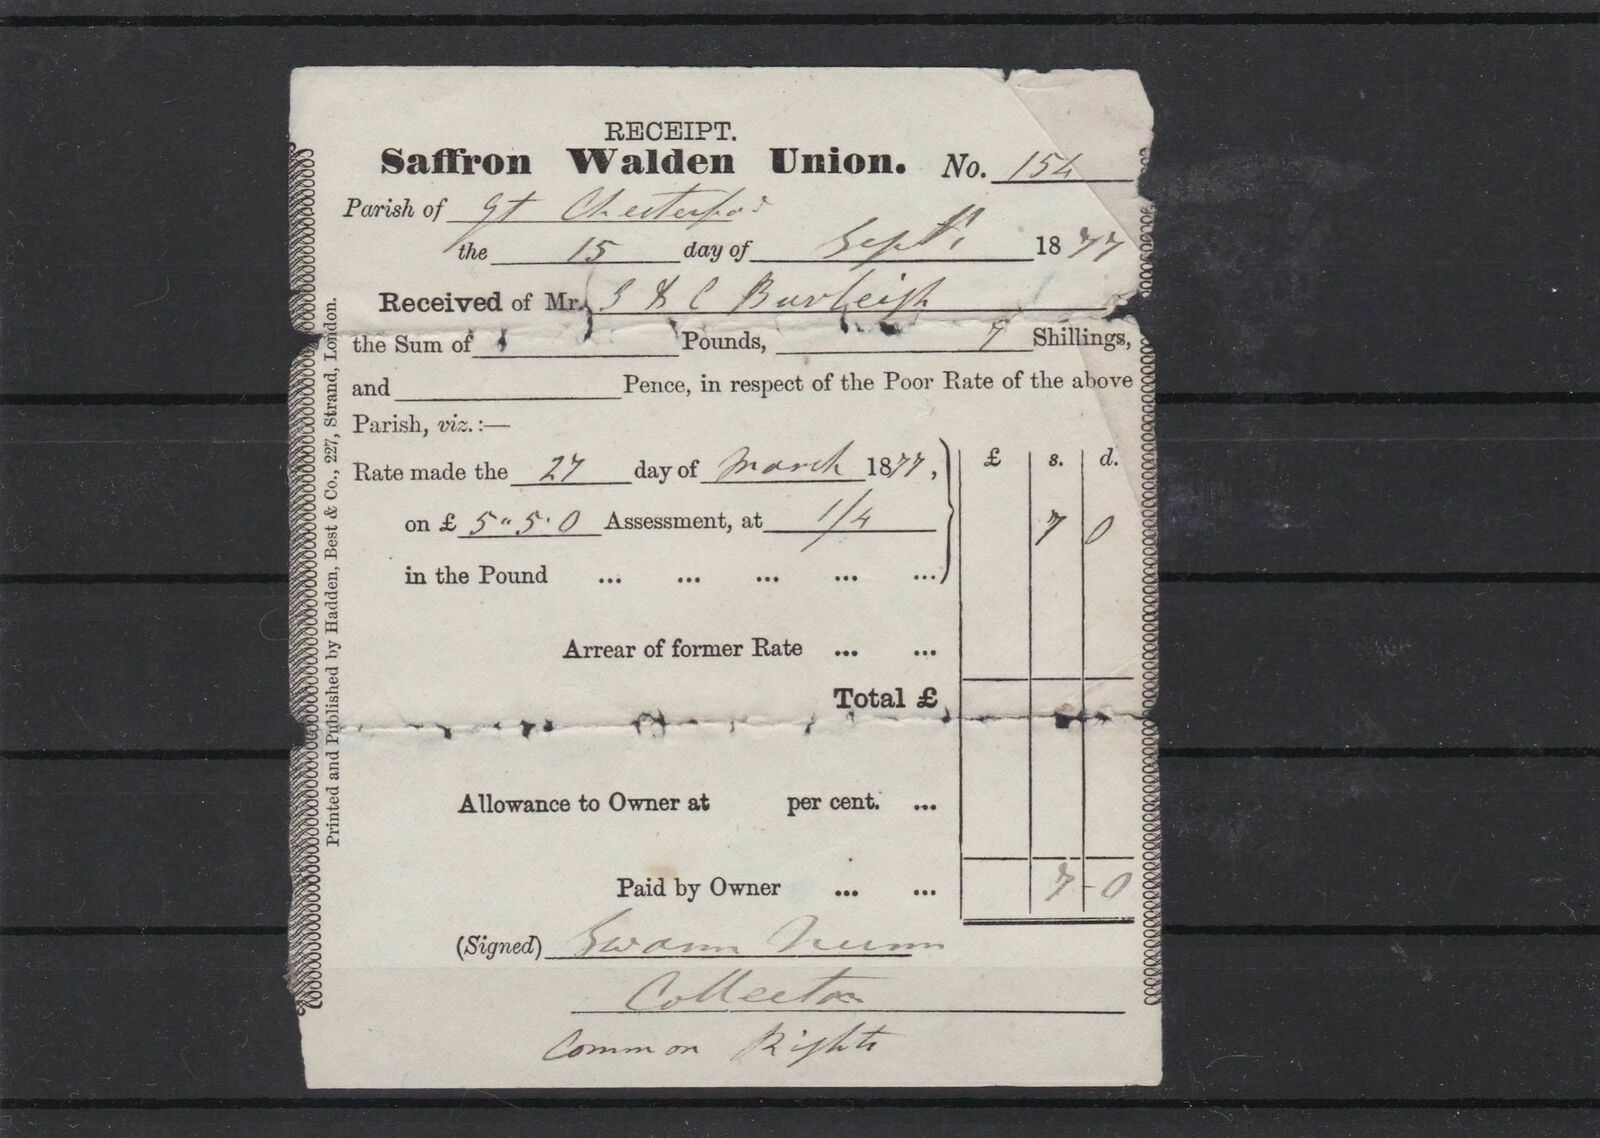 RECEIPT.
Saffron Walden Union. No. 154
Parish of Gt Chesterford
the 15 day of Sept. 1877
Received of Mr. & C Burleigh
the Sum of Pounds, 7 Shillings,
and Pence, in respect of the Poor Rate of the above
Parish, viz.:—
Rate made the 27 day of March 1877,
on £ 5"5.0 Assessment, at 1/4
in the Pound ... ... ... ... ...
£ s. d.
7 0
Arrear of former Rate ... ...
Total £
Allowance to Owner at per cent. ...
Paid by Owner ... ... 7-0
(Signed) Swann Nunn
Collector
Common Rights
Printed and Published by Hadden, Best & Co., 227, Strand, London.